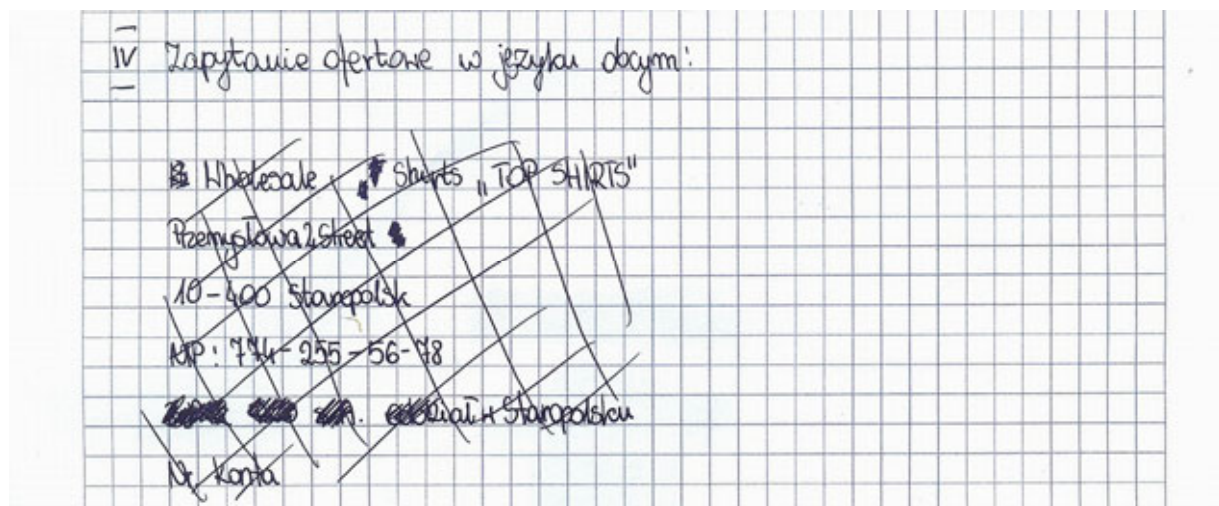 IV Zapytanie ofertowe w języku obcym:
Wholesale Shirts „TOP SHIRTS"
Przemysłowa 2 Street
10-400 Staropolsk
NIP: 774-255-56-78
oddział w Staropolsku
Nr. Konta